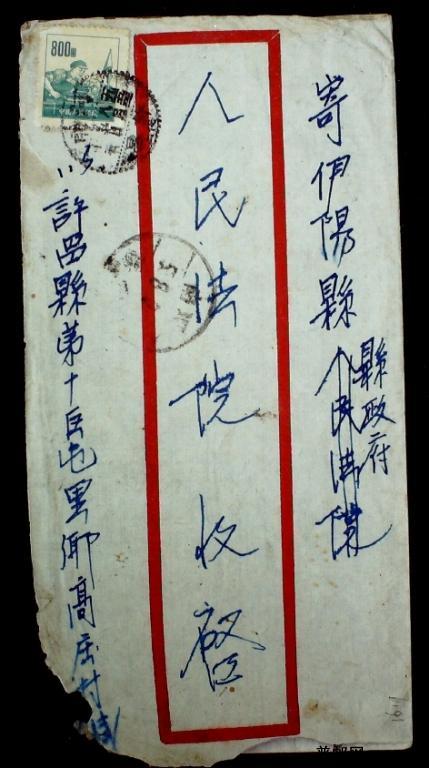 寄伊陽縣人民法院
縣政府
人民法院收啓
許昌縣第十区屯里鄉高庄村
800圓
普邮网
1691